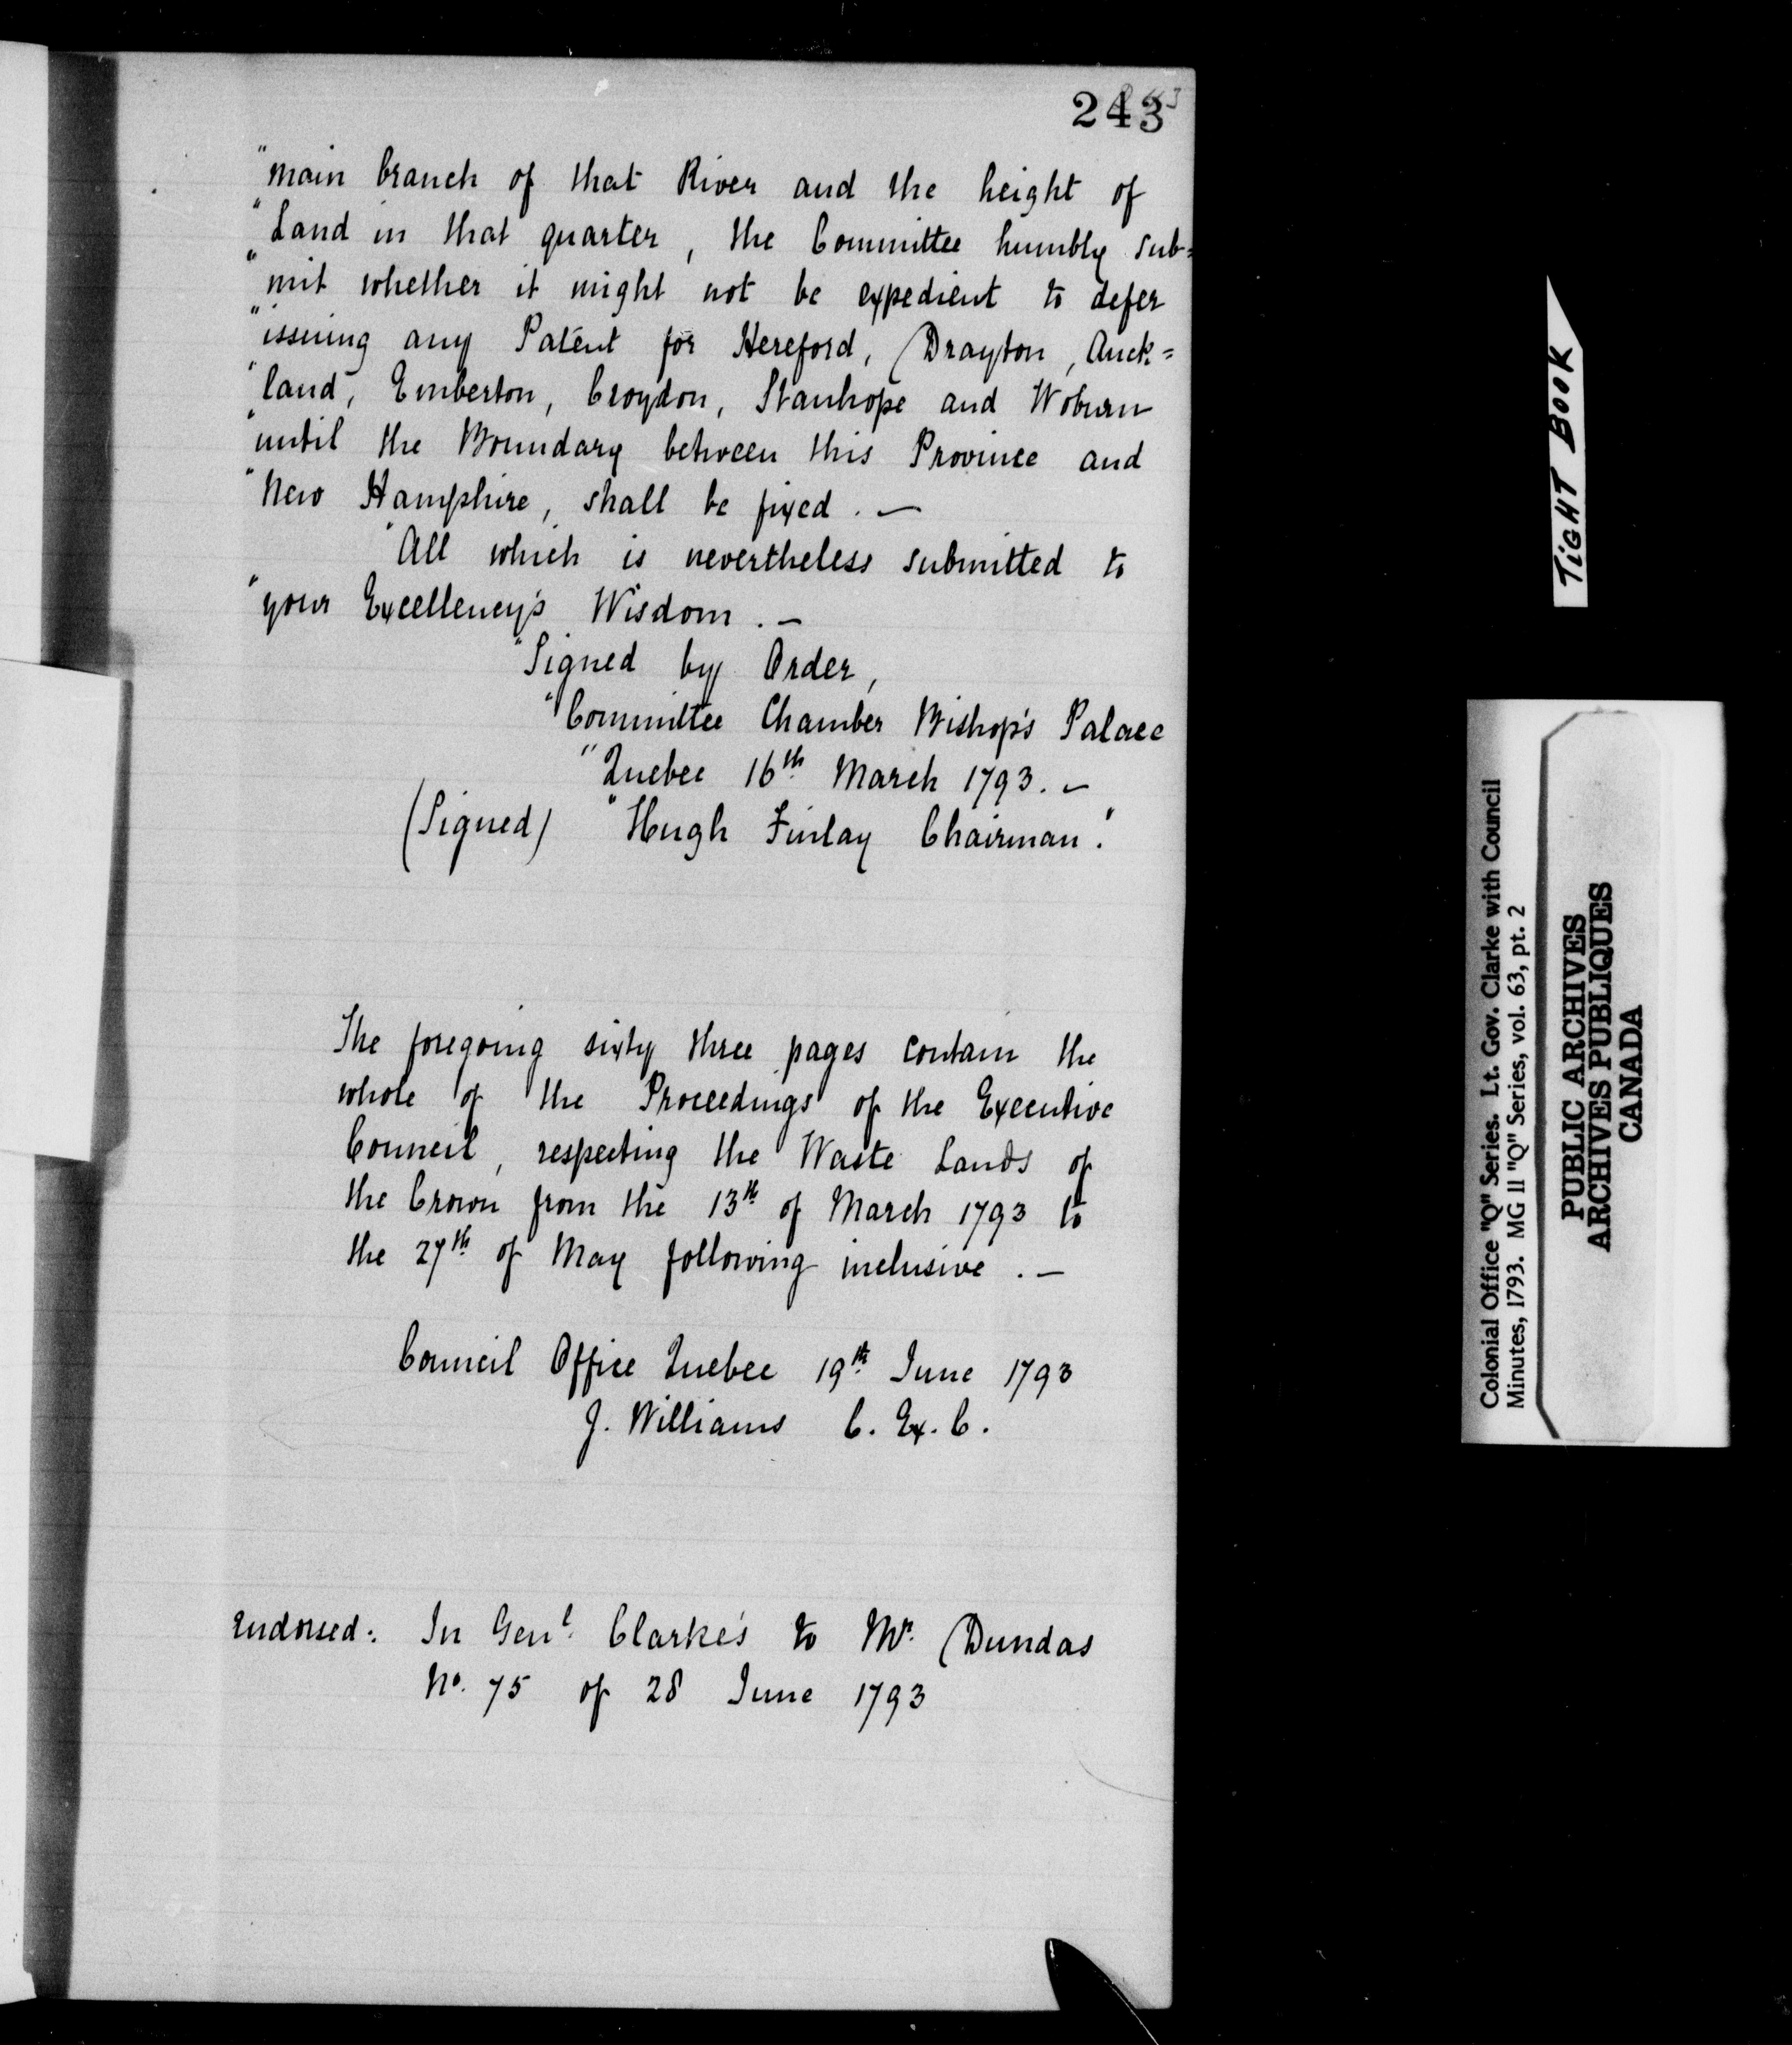 243
"main branch of that River and the height of
"Land in that quarter, the Committee humbly sub=
"mit whether it might not be expedient to defer
"issuing any Patent for Hereford, Drayton, Auck=
"land, Emberton, Croydon, Stanhope and Woburn
"until the Boundary between this Province and
"New Hampshire, shall be fixed. —
"All which is nevertheless submitted to
"your Excellency's Wisdom. —
"Signed by Order,
"Committee Chamber Bishop's Palace
"Quebec 16th March 1793. —
(Signed) "Hugh Finlay Chairman."
The foregoing sixty three pages contain the
whole of the Proceedings of the Executive
Council, respecting the Waste Lands of
the Crown from the 13th of March 1793 to
the 27th of May following inclusive. —
Council Office Quebec 19th June 1793
J. Williams C. Ex. C.
Endorsed: In Genl Clarke's to Mr. Dundas
No. 75 of 28 June 1793
TIGHT BOOK
Colonial Office "Q" Series. Lt. Gov. Clarke with Council
Minutes, 1793. MG 11 "Q" Series, vol. 63, pt. 2
PUBLIC ARCHIVES
ARCHIVES PUBLIQUES
CANADA